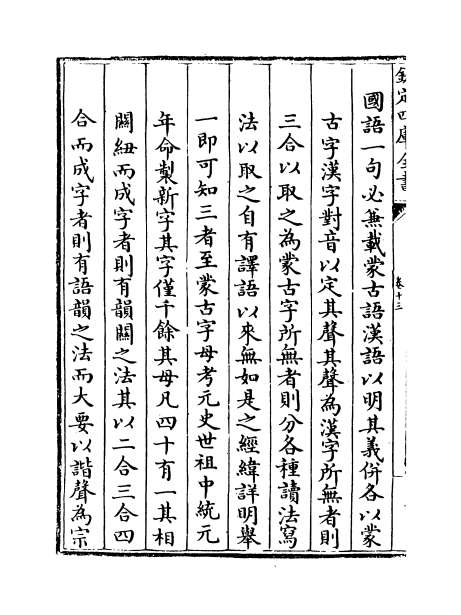 欽定四庫全書
卷十三
國語一句必兼載蒙古語漢語以明其義併各以蒙
古字漢字對音以定其聲其聲為漢字所無者則
三合以取之為蒙古字所無者則分各種讀法寫
法以取之自有譯語以來無如是之經緯詳明舉
一即可知三者至蒙古字母考元史世祖中統元
年命製新字其字僅千餘其母凡四十有一其相
關紐而成字者則有韻關之法其以二合三合四
合而成字者則有語韻之法而大要以諧聲為宗